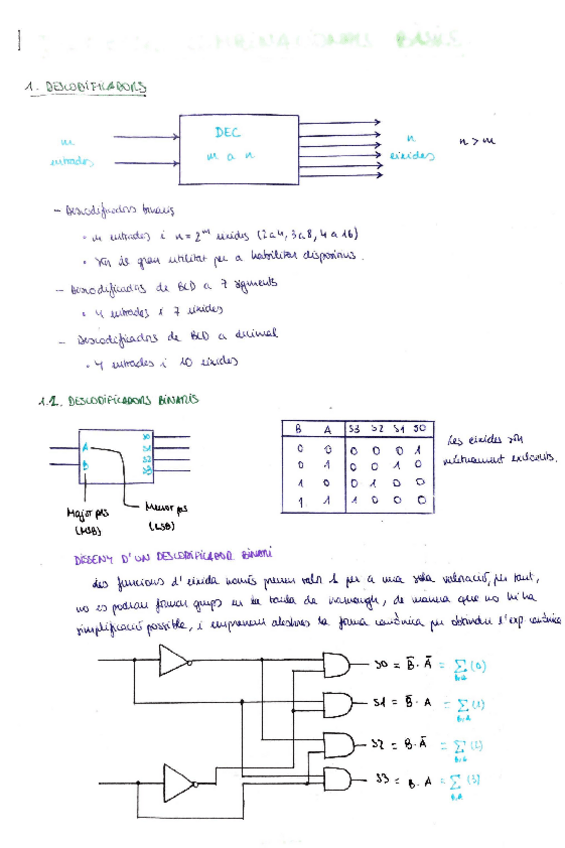 1. DESCODIFICADORS
DEC
m a n
m
entrades
n
eixides
n > m
- Descodificadors binaris
· m entrades i n = 2^m eixides (2 a 4, 3 a 8, 4 a 16)
· Són de gran utilitat per a habilitar dispositius.
- Descodificadors de BCD a 7 segments
· 4 entrades i 7 eixides
- Descodificadors de BCD a decimal
· 4 entrades i 10 eixides
1.1. DESCODIFICADORS BINARIS
A
B
S0
S1
S2
S3
Major pes
(MSB)
Menor pes
(LSB)
B A S3 S2 S1 S0
0 0 0 0 0 1
0 1 0 0 1 0
1 0 0 1 0 0
1 1 1 0 0 0
Les eixides són
mútuament excloents.
DISSENY D'UN DESCODIFICADOR BINARI
Les funcions d'eixida només prenen valor 1 per a una sola valoració, per tant,
no es podran formar grups en la taula de Karnaugh, de manera que no hi ha
simplificació possible, i emprarem aleshores la forma canònica per obtindre l'exp. canònica
S0 = B̅ · A̅ = ∑ (0)
B,A
S1 = B̅ · A = ∑ (1)
B,A
S2 = B · A̅ = ∑ (2)
B,A
S3 = B · A = ∑ (3)
B,A